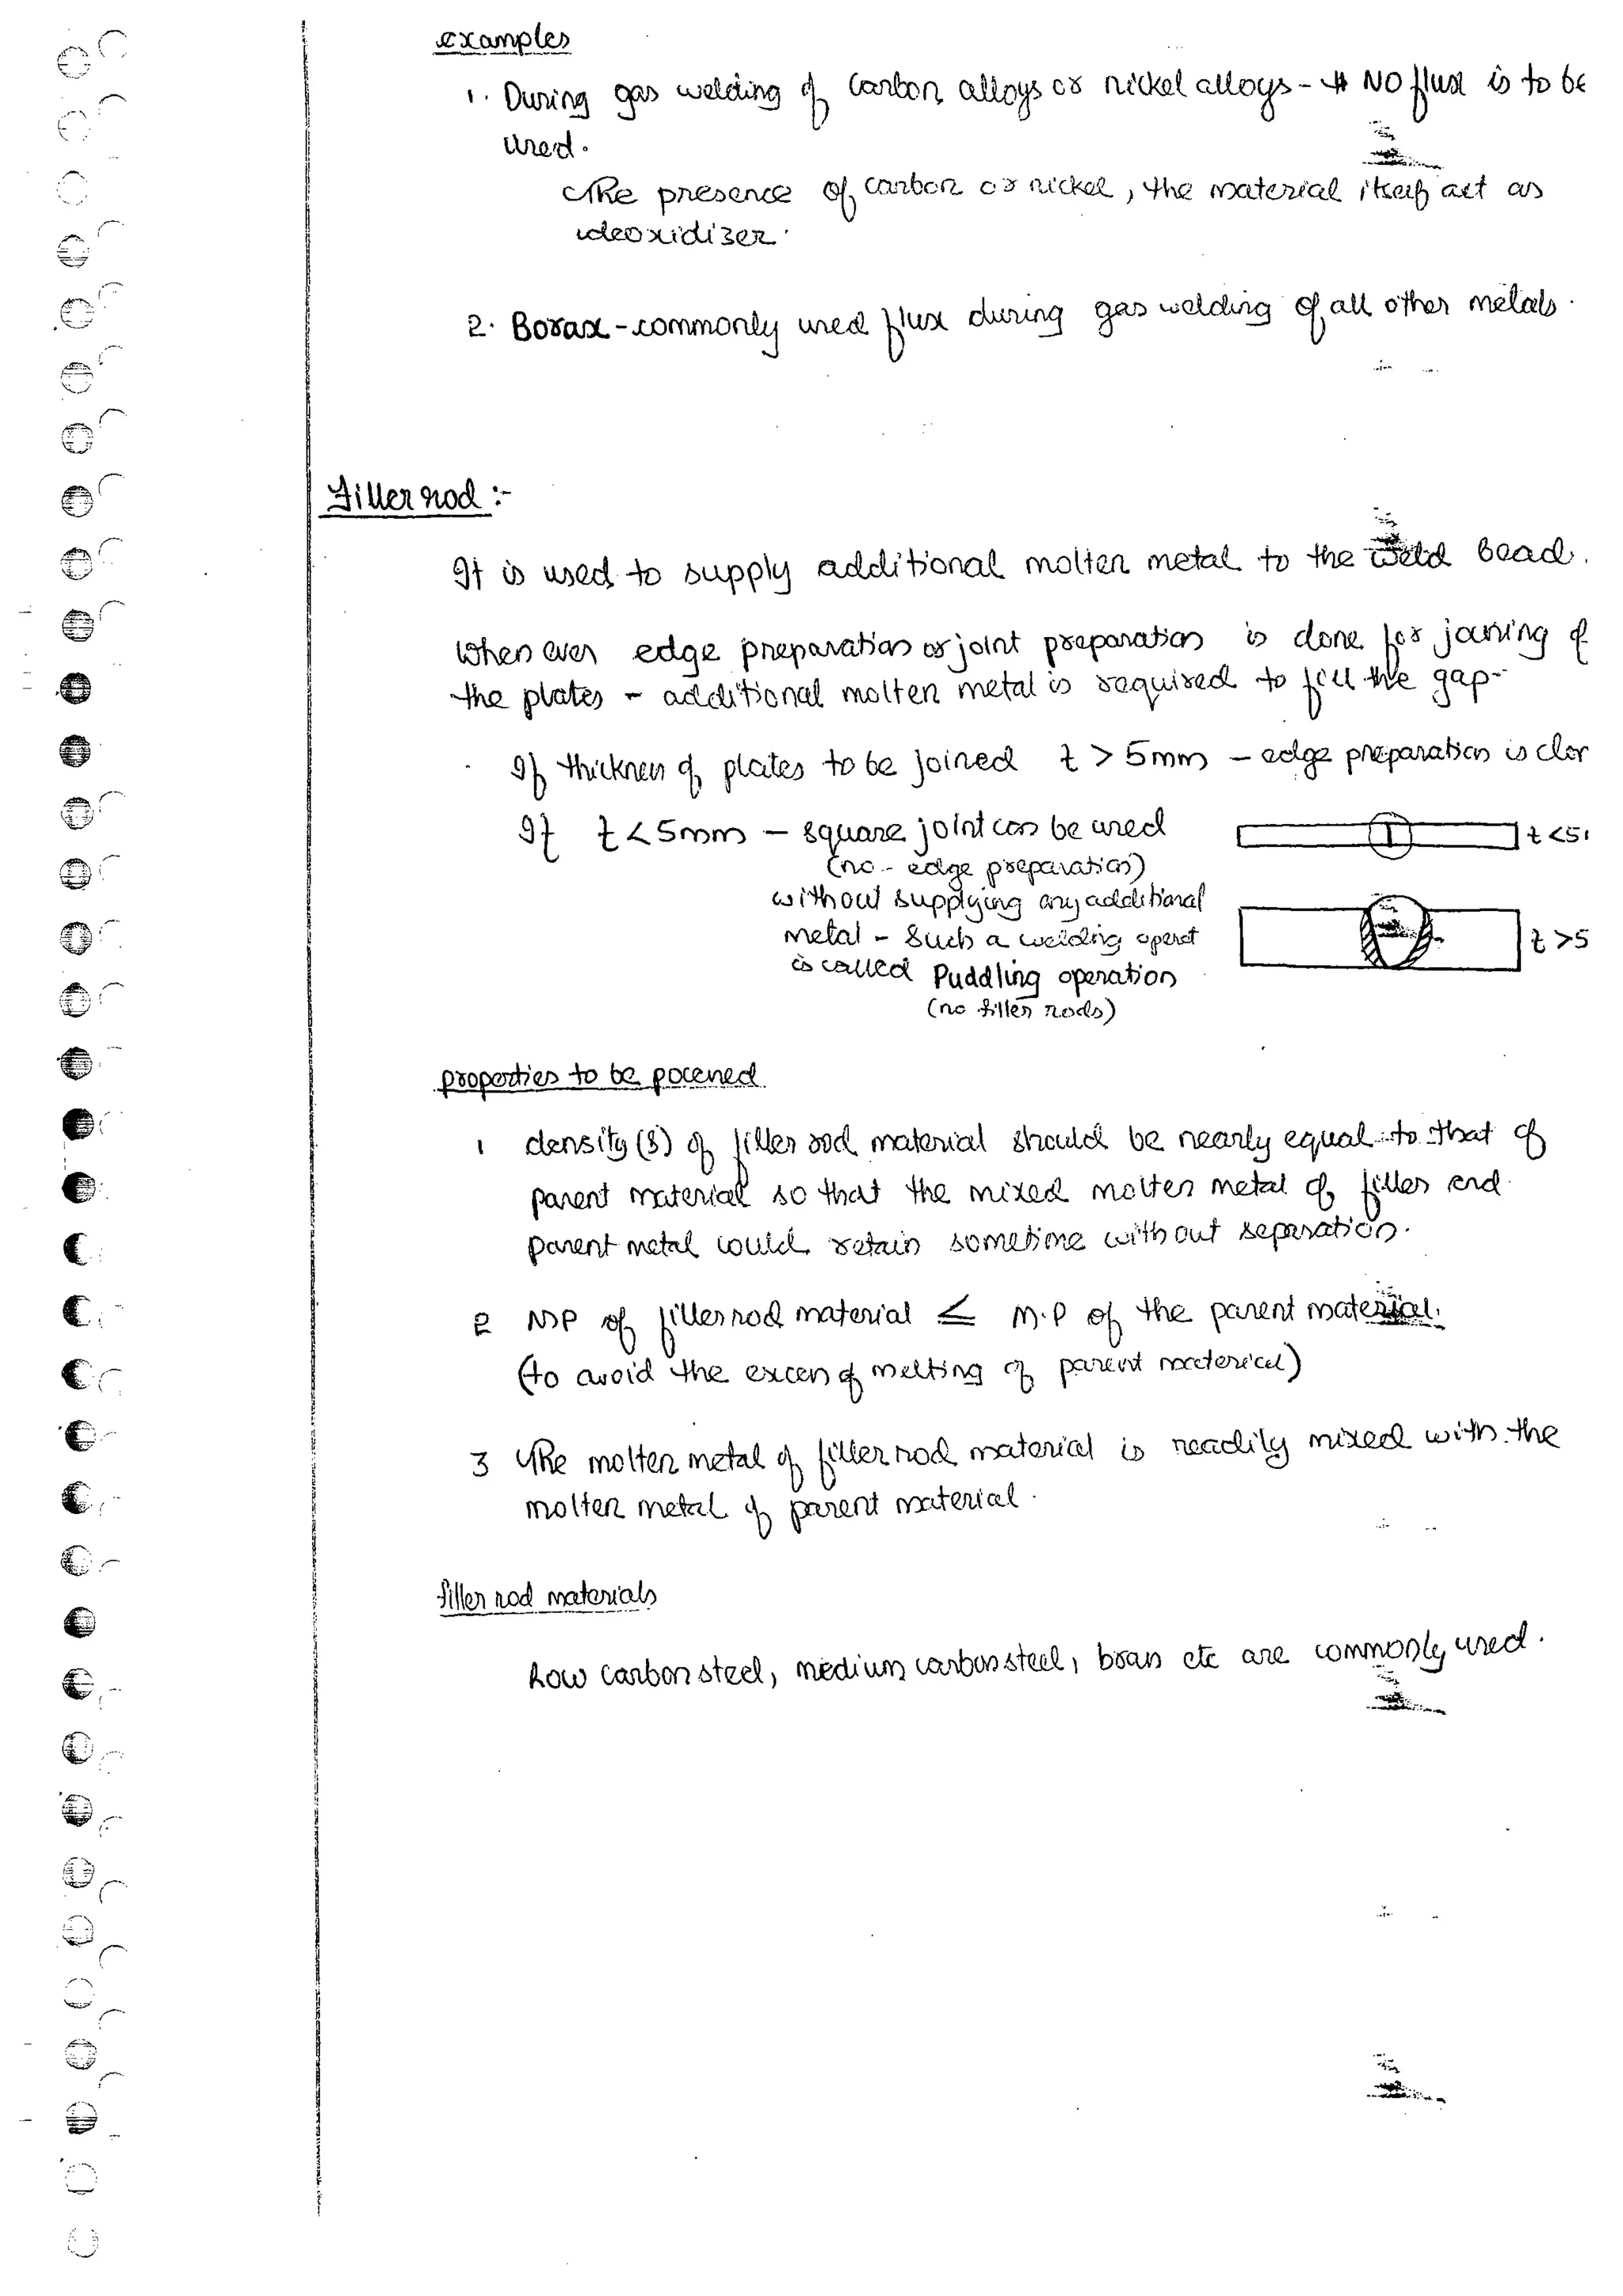 examples
1. During gas welding of carbon alloys or nickel alloys - NO flux is to be
used.
The presence of carbon or nickel, the material itself act as
deoxidizer.
2. Borax - commonly used flux during gas welding of all other metals.
Filler rod :-
It is used to supply additional molten metal to the weld bead.
When ever edge preparation or joint preparation is done for joining of
the plates - additional molten metal is required to fill the gap-
If thickness of plates to be joined t > 5mm - edge preparation is
If t < 5mm - square joint can be used
t <5
(no - edge preparation)
without supplying any additional
metal - Such a welding operat
t >5
is called Puddling operation
(no filler rods)
properties to be possessed
1 density (S) of filler rod material should be nearly equal to that of
parent material so that the mixed molten metal of filler and
parent metal could retain sometime without separation.
2 MP of filler rod material ≤ M.P of the parent material.
(to avoid the excess of melting of parent material)
3 The molten metal of filler rod material is readily mixed with the
molten metal of parent material.
filler rod materials
Low carbon steel, medium carbon steel, brass etc are commonly used.